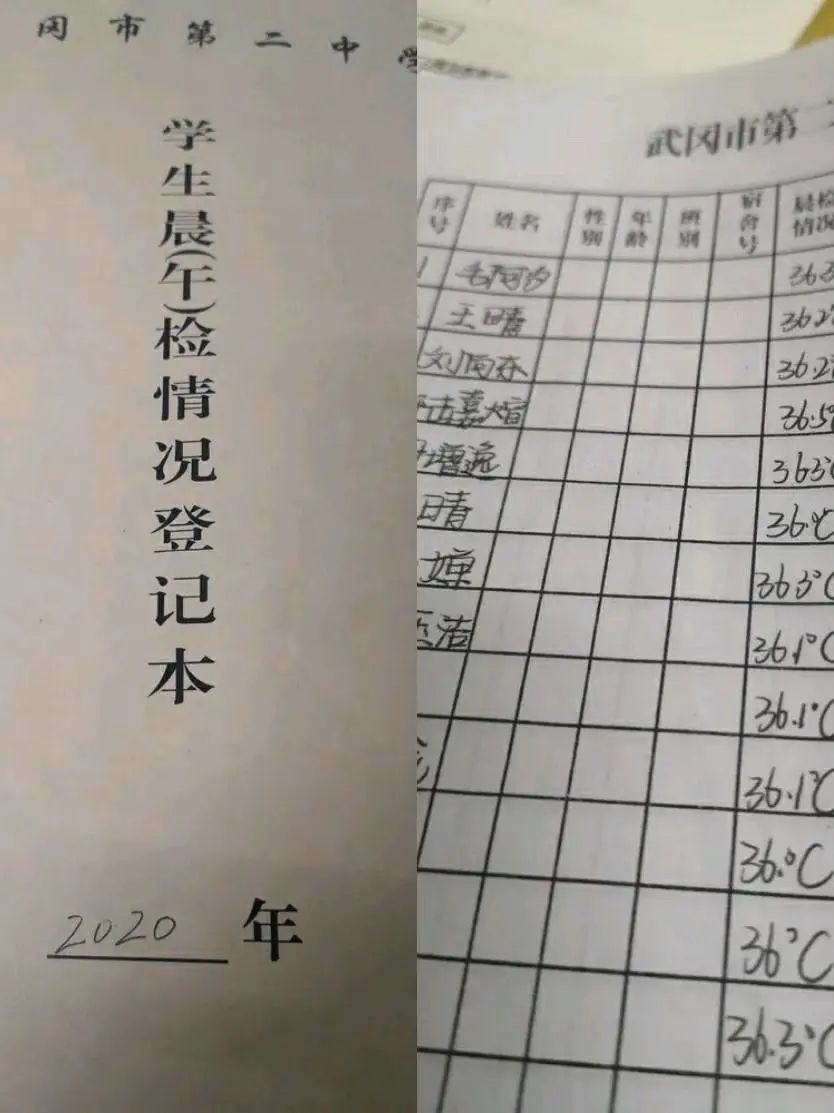 冈市第二中学
学生晨(午)检情况登记本
2020年
武冈市第二
序号 姓名 性别 年龄 班别 宿舍号 晨检情况
1 毛阿沙 36.3
王晴 36.2°
刘向东 36.2
嘉煊 36.5°
增逸 36.3°C
晴 36.°C
36.3°C
浩 36.1°C
36.1°C
36.1°C
36.°C
36°C
36.3°C